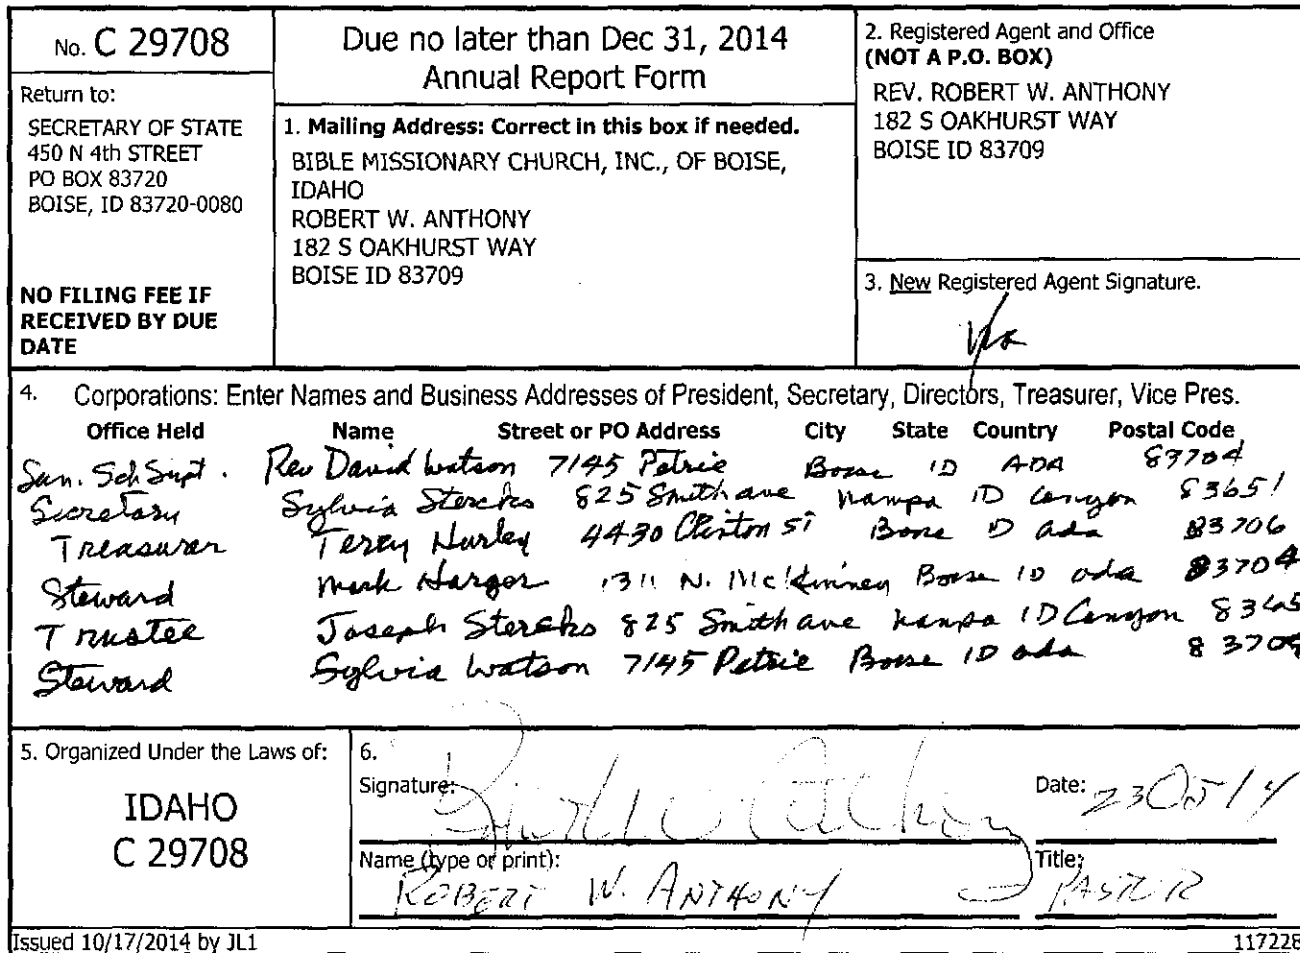 No. C 29708
Return to:
SECRETARY OF STATE
450 N 4th STREET
PO BOX 83720
BOISE, ID 83720-0080
NO FILING FEE IF
RECEIVED BY DUE
DATE
Due no later than Dec 31, 2014
Annual Report Form
1. Mailing Address: Correct in this box if needed.
BIBLE MISSIONARY CHURCH, INC., OF BOISE,
IDAHO
ROBERT W. ANTHONY
182 S OAKHURST WAY
BOISE ID 83709
2. Registered Agent and Office
(NOT A P.O. BOX)
REV. ROBERT W. ANTHONY
182 S OAKHURST WAY
BOISE ID 83709
3. New Registered Agent Signature.
4. Corporations: Enter Names and Business Addresses of President, Secretary, Directors, Treasurer, Vice Pres.
Office Held Name Street or PO Address City State Country Postal Code
Sun. Sch Supt. Rev David Watson 7145 Petrie Boise ID ADA 83704
Secretary Sylvia Stercks 825 Smith ave Nampa ID Canyon 83651
Treasurer Terey Hurley 4430 Clinton St Boise ID ada 83706
Steward Mark Harger 1311 N. McKinney Boise ID ada 83704
Trustee Joseph Stercks 825 Smith ave Nampa ID Canyon 8365
Steward Sylvia Watson 7145 Petrie Boise ID ada 83704
5. Organized Under the Laws of:
IDAHO
C 29708
6.
Signature: Date:
Name (type or print): Title:
ROBERT W. ANTHONY PASTOR
Issued 10/17/2014 by JL1 117228